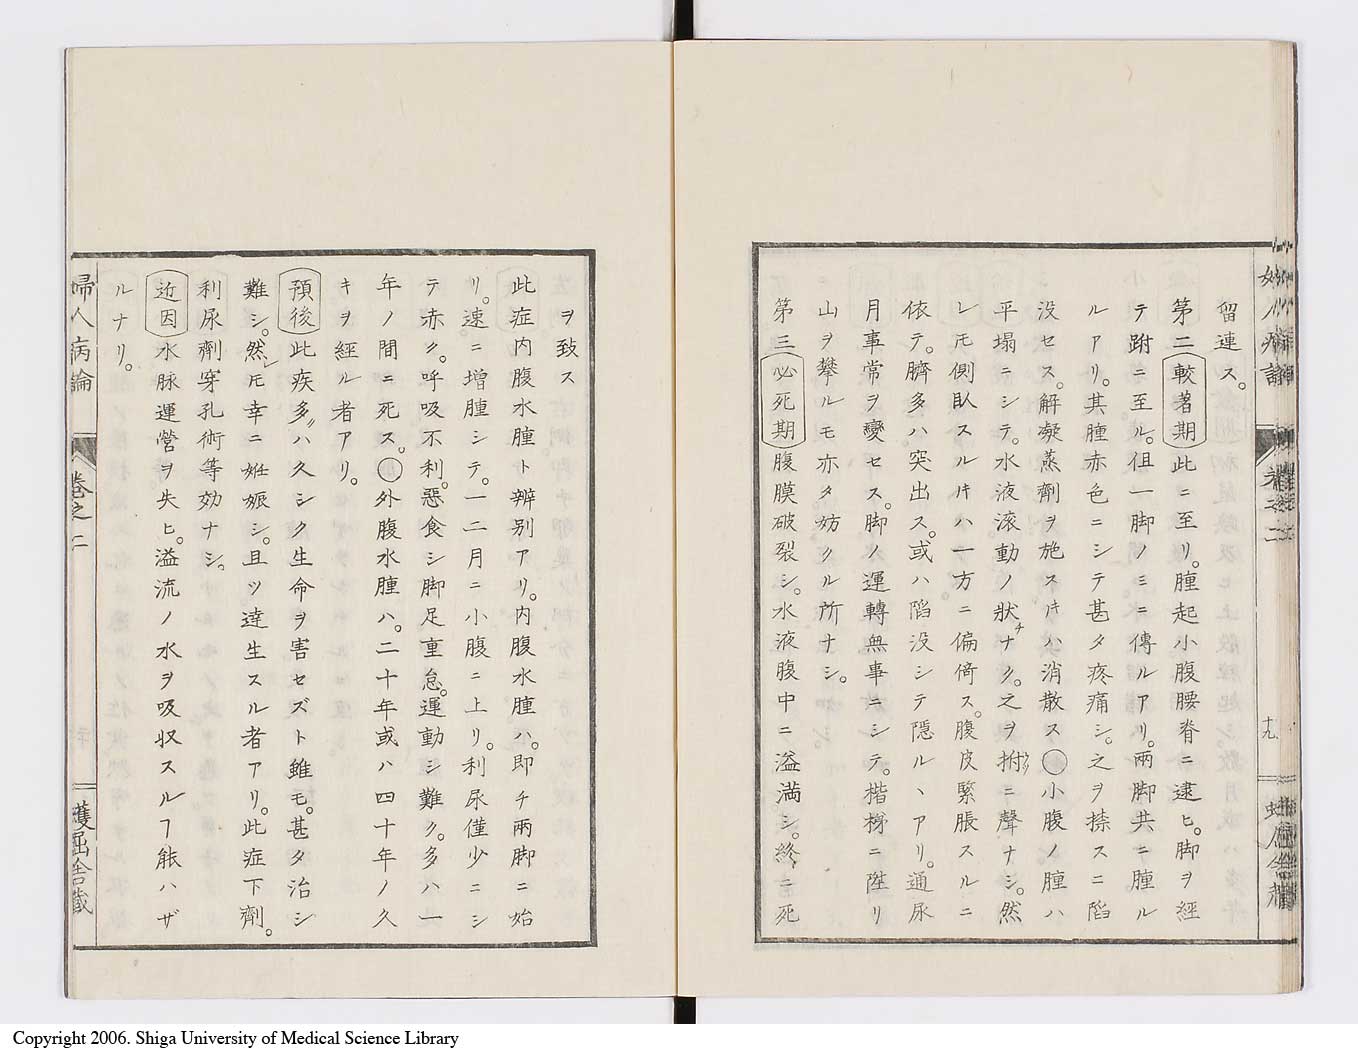 留連ス。
第二較著期此ニ至リ。腫起小腹腰脊ニ逮ヒ。脚ヲ經
テ跗ニ至ル。但一脚ノミニ傳ルアリ。兩脚共ニ腫ル
ルアリ。其腫赤色ニシテ甚タ疼痛シ。之ヲ捺スニ陷
没セス。解凝蒸劑ヲ施スキハ消散ス〇小腹ノ腫ハ
平塌ニシテ。水液滾動ノ狀ナク。之ヲ拊ニ聲ナシ。然
レモ側臥スルキハ一方ニ偏倚ス。腹皮緊脹スルニ
依テ。臍多ハ突出ス。或ハ陷没シテ隱ルヽアリ。通尿
月事常ヲ變セス。脚ノ運轉無事ニシテ。楷梯ニ陞リ
山ヲ攀ルモ亦タ妨クル所ナシ。
第三必死期腹膜破裂シ。水液腹中ニ溢滿シ。終ニ死
十九
ヲ致ス
此症内腹水腫ト辨別アリ。内腹水腫ハ。即チ兩脚ニ始
リ。速ニ增腫シテ。一二月ニ小腹ニ上リ。利尿僅少ニシ
テ赤ク。呼吸不利。惡食シ脚足重怠。運動シ難ク。多ハ一
年ノ間ニ死ス。〇外腹水腫ハ。二十年或ハ四十年ノ久
キヲ經ル者アリ。
預後此疾多ハ久シク生命ヲ害セズト雖モ。甚タ治シ
難シ。然レモ幸ニ姙娠シ。且ツ達生スル者アリ。此症下劑。
利尿劑穿孔術等効ナシ。
近因水脉運營ヲ失ヒ。溢流ノ水ヲ吸収スルヿ能ハザ
ルナリ。
婦人病論 卷之二
Copyright 2006. Shiga University of Medical Science Library